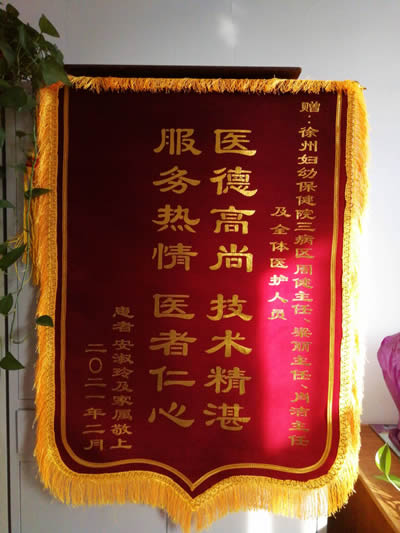 赠：徐州妇幼保健院三病区周健主任、梁丽主任、肖洁主任
及全体医护人员
医德高尚 技术精湛
服务热情 医者仁心
患者安淑玲及家属敬上
二〇二一年二月